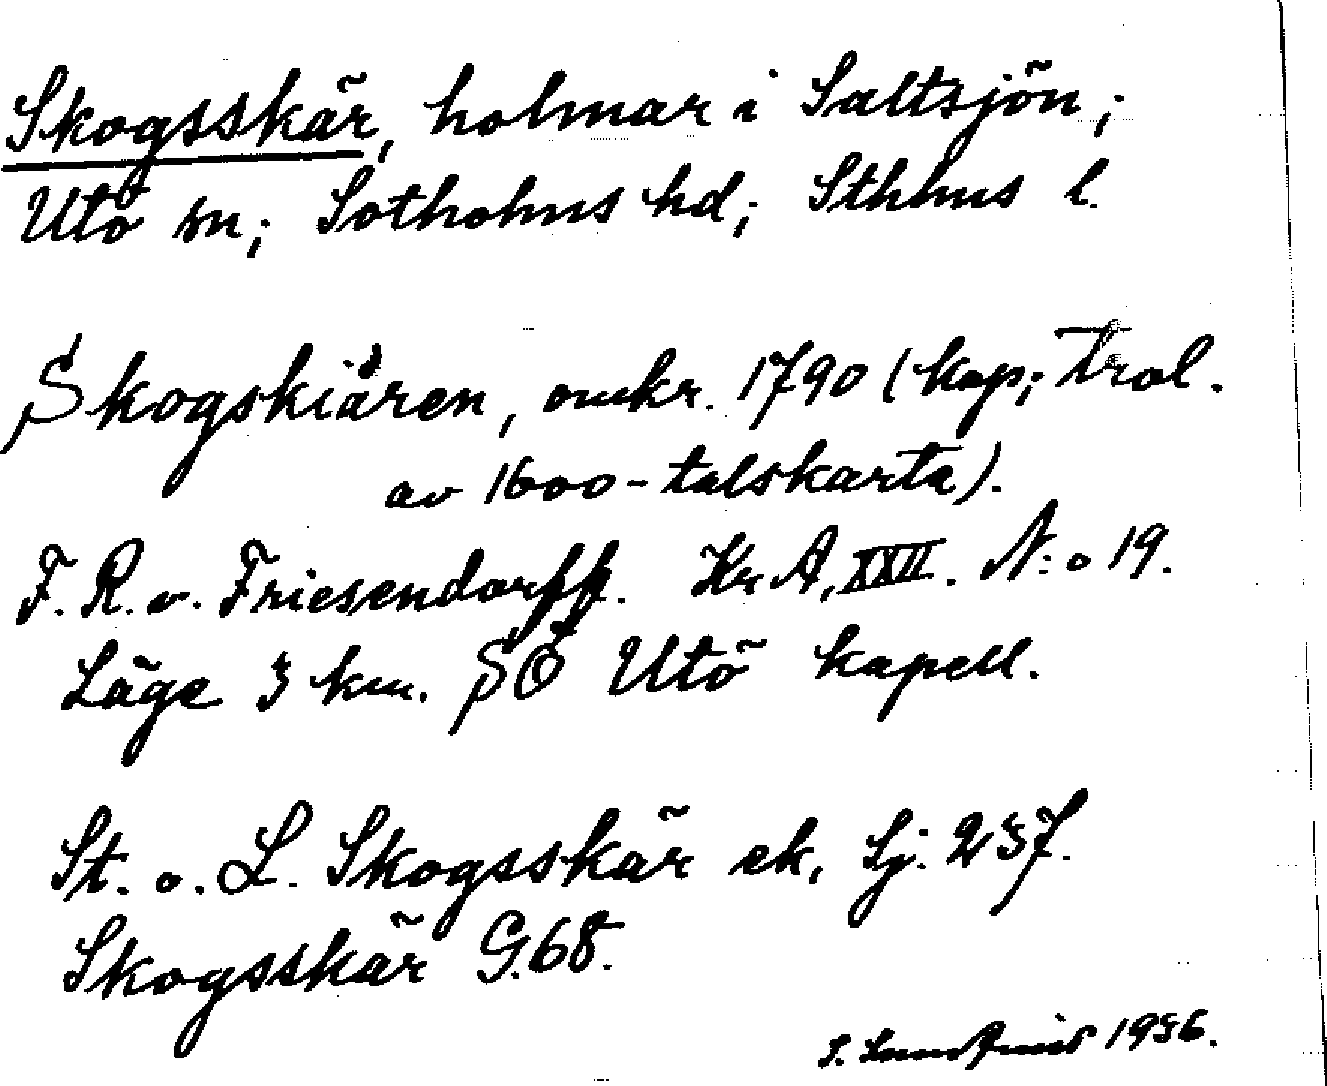 Skogsskär, holmar i Saltsjön;
Utö sn; Sotholms hd; Sthlms l.
Skogskiären, omkr. 1790 (kop; trol.
av 1600-talskarta).
F. R. v. Friesendorff. Kr A, XXII. N:o 19.
Läge 3 km. SÖ Utö kapell.
St. o. L. Skogsskär ek, Sj. 237.
Skogsskär G.68.
S. 1956.